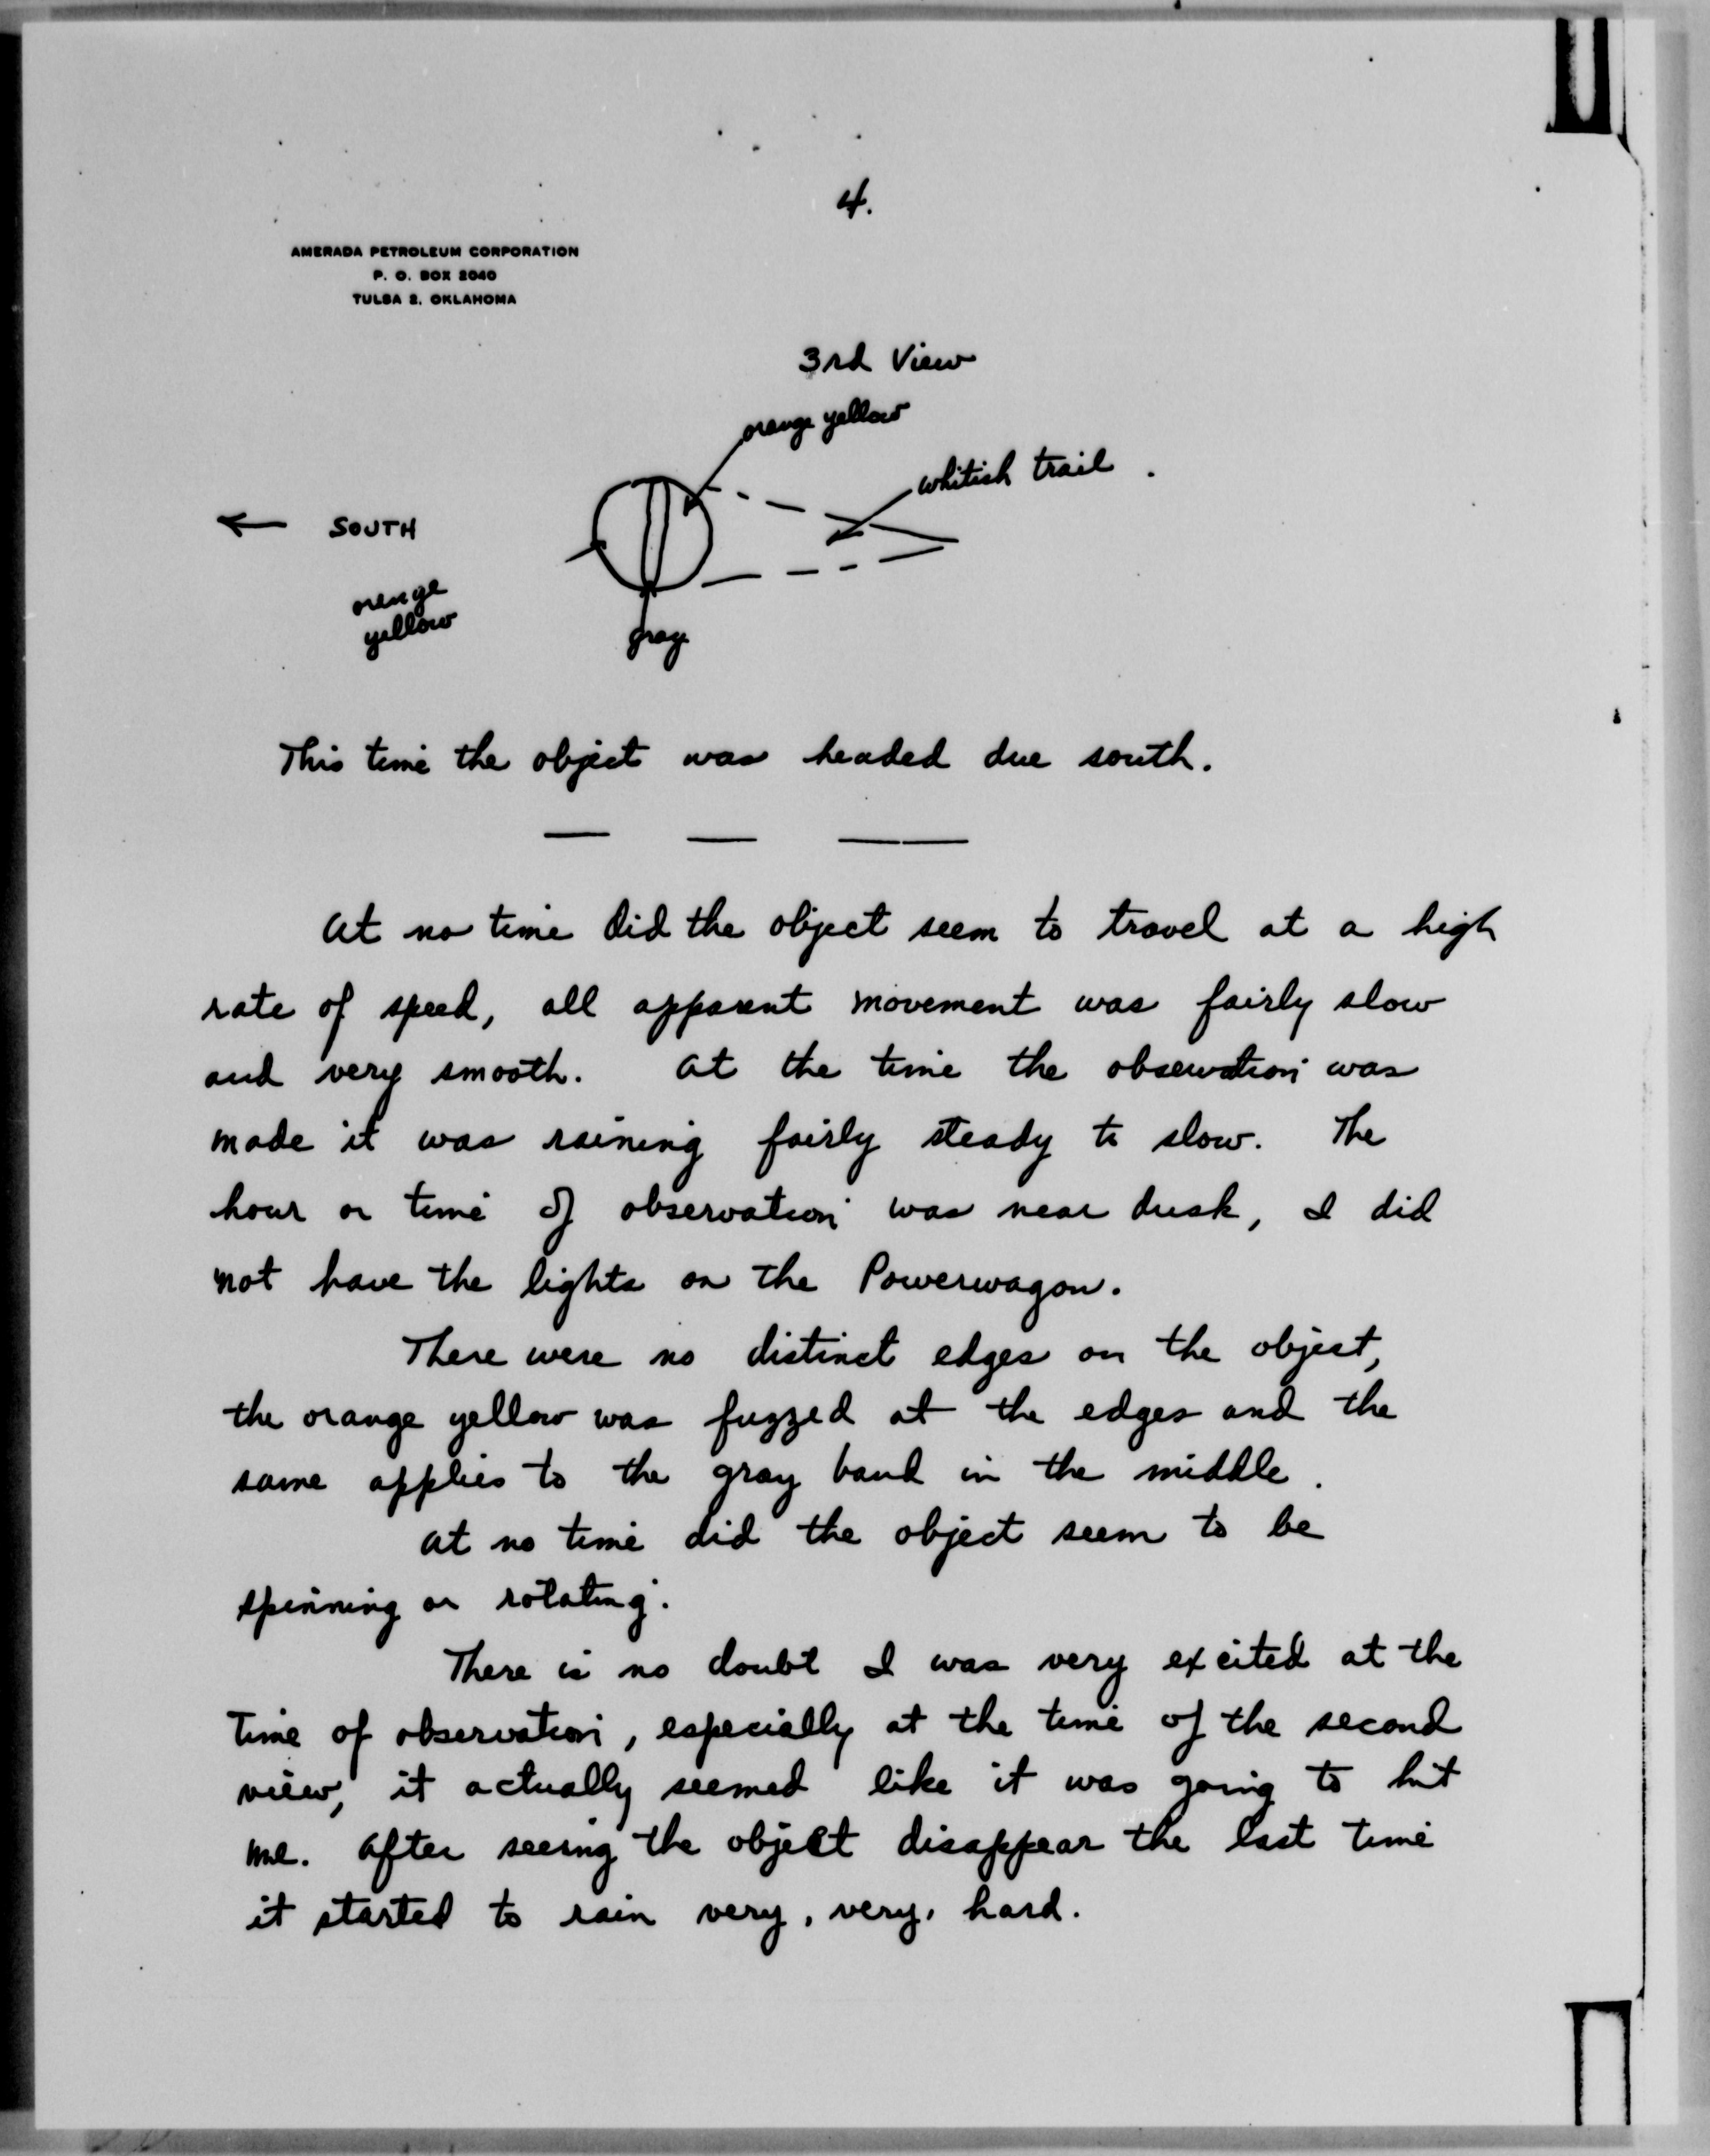 4.
AMERADA PETROLEUM CORPORATION
P. O. BOX 2040
TULSA 2, OKLAHOMA
3rd View
orange yellow
whitish trail
← SOUTH
orange
yellow
gray
This time the object was headed due south.
At no time did the object seem to travel at a high
rate of speed, all apparent movement was fairly slow
and very smooth. At the time the observation was
made it was raining fairly steady to slow. The
hour or time of observation was near dusk, I did
not have the lights on the Powerwagon.
There were no distinct edges on the object,
the orange yellow was fuzzed at the edges and the
same applies to the gray band in the middle.
At no time did the object seem to be
spinning or rotating.
There is no doubt I was very excited at the
time of observation, especially at the time of the second
view, it actually seemed like it was going to hit
me. After seeing the object disappear the last time
it started to rain very, very, hard.